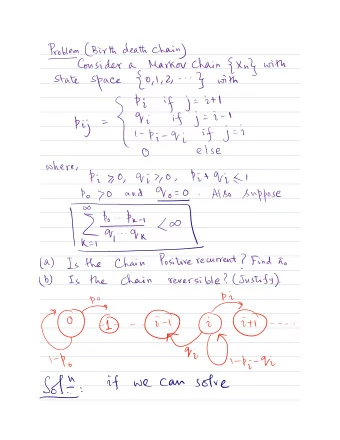 Problem (Birth death chain)
Consider a Markov Chain {Xn} with
state space {0,1,2, ...} with
Pij = { pi if j = i+1
qi if j = i-1
1-pi-qi if j = i
0 else
where,
pi ≥ 0, qi ≥ 0, pi + qi ≤ 1
p0 > 0 and q0 = 0. Also suppose
∞ ∑ k=1 p0 ... pk-1 / q1 ... qk < ∞
(a) Is the chain Positive recurrent? Find π0
(b) Is the chain reversible? (Justify)
p0 pi
0 1 ... i-1 i i+1 ....
qi
1-p0 1-pi-qi
Solⁿ: if we can solve